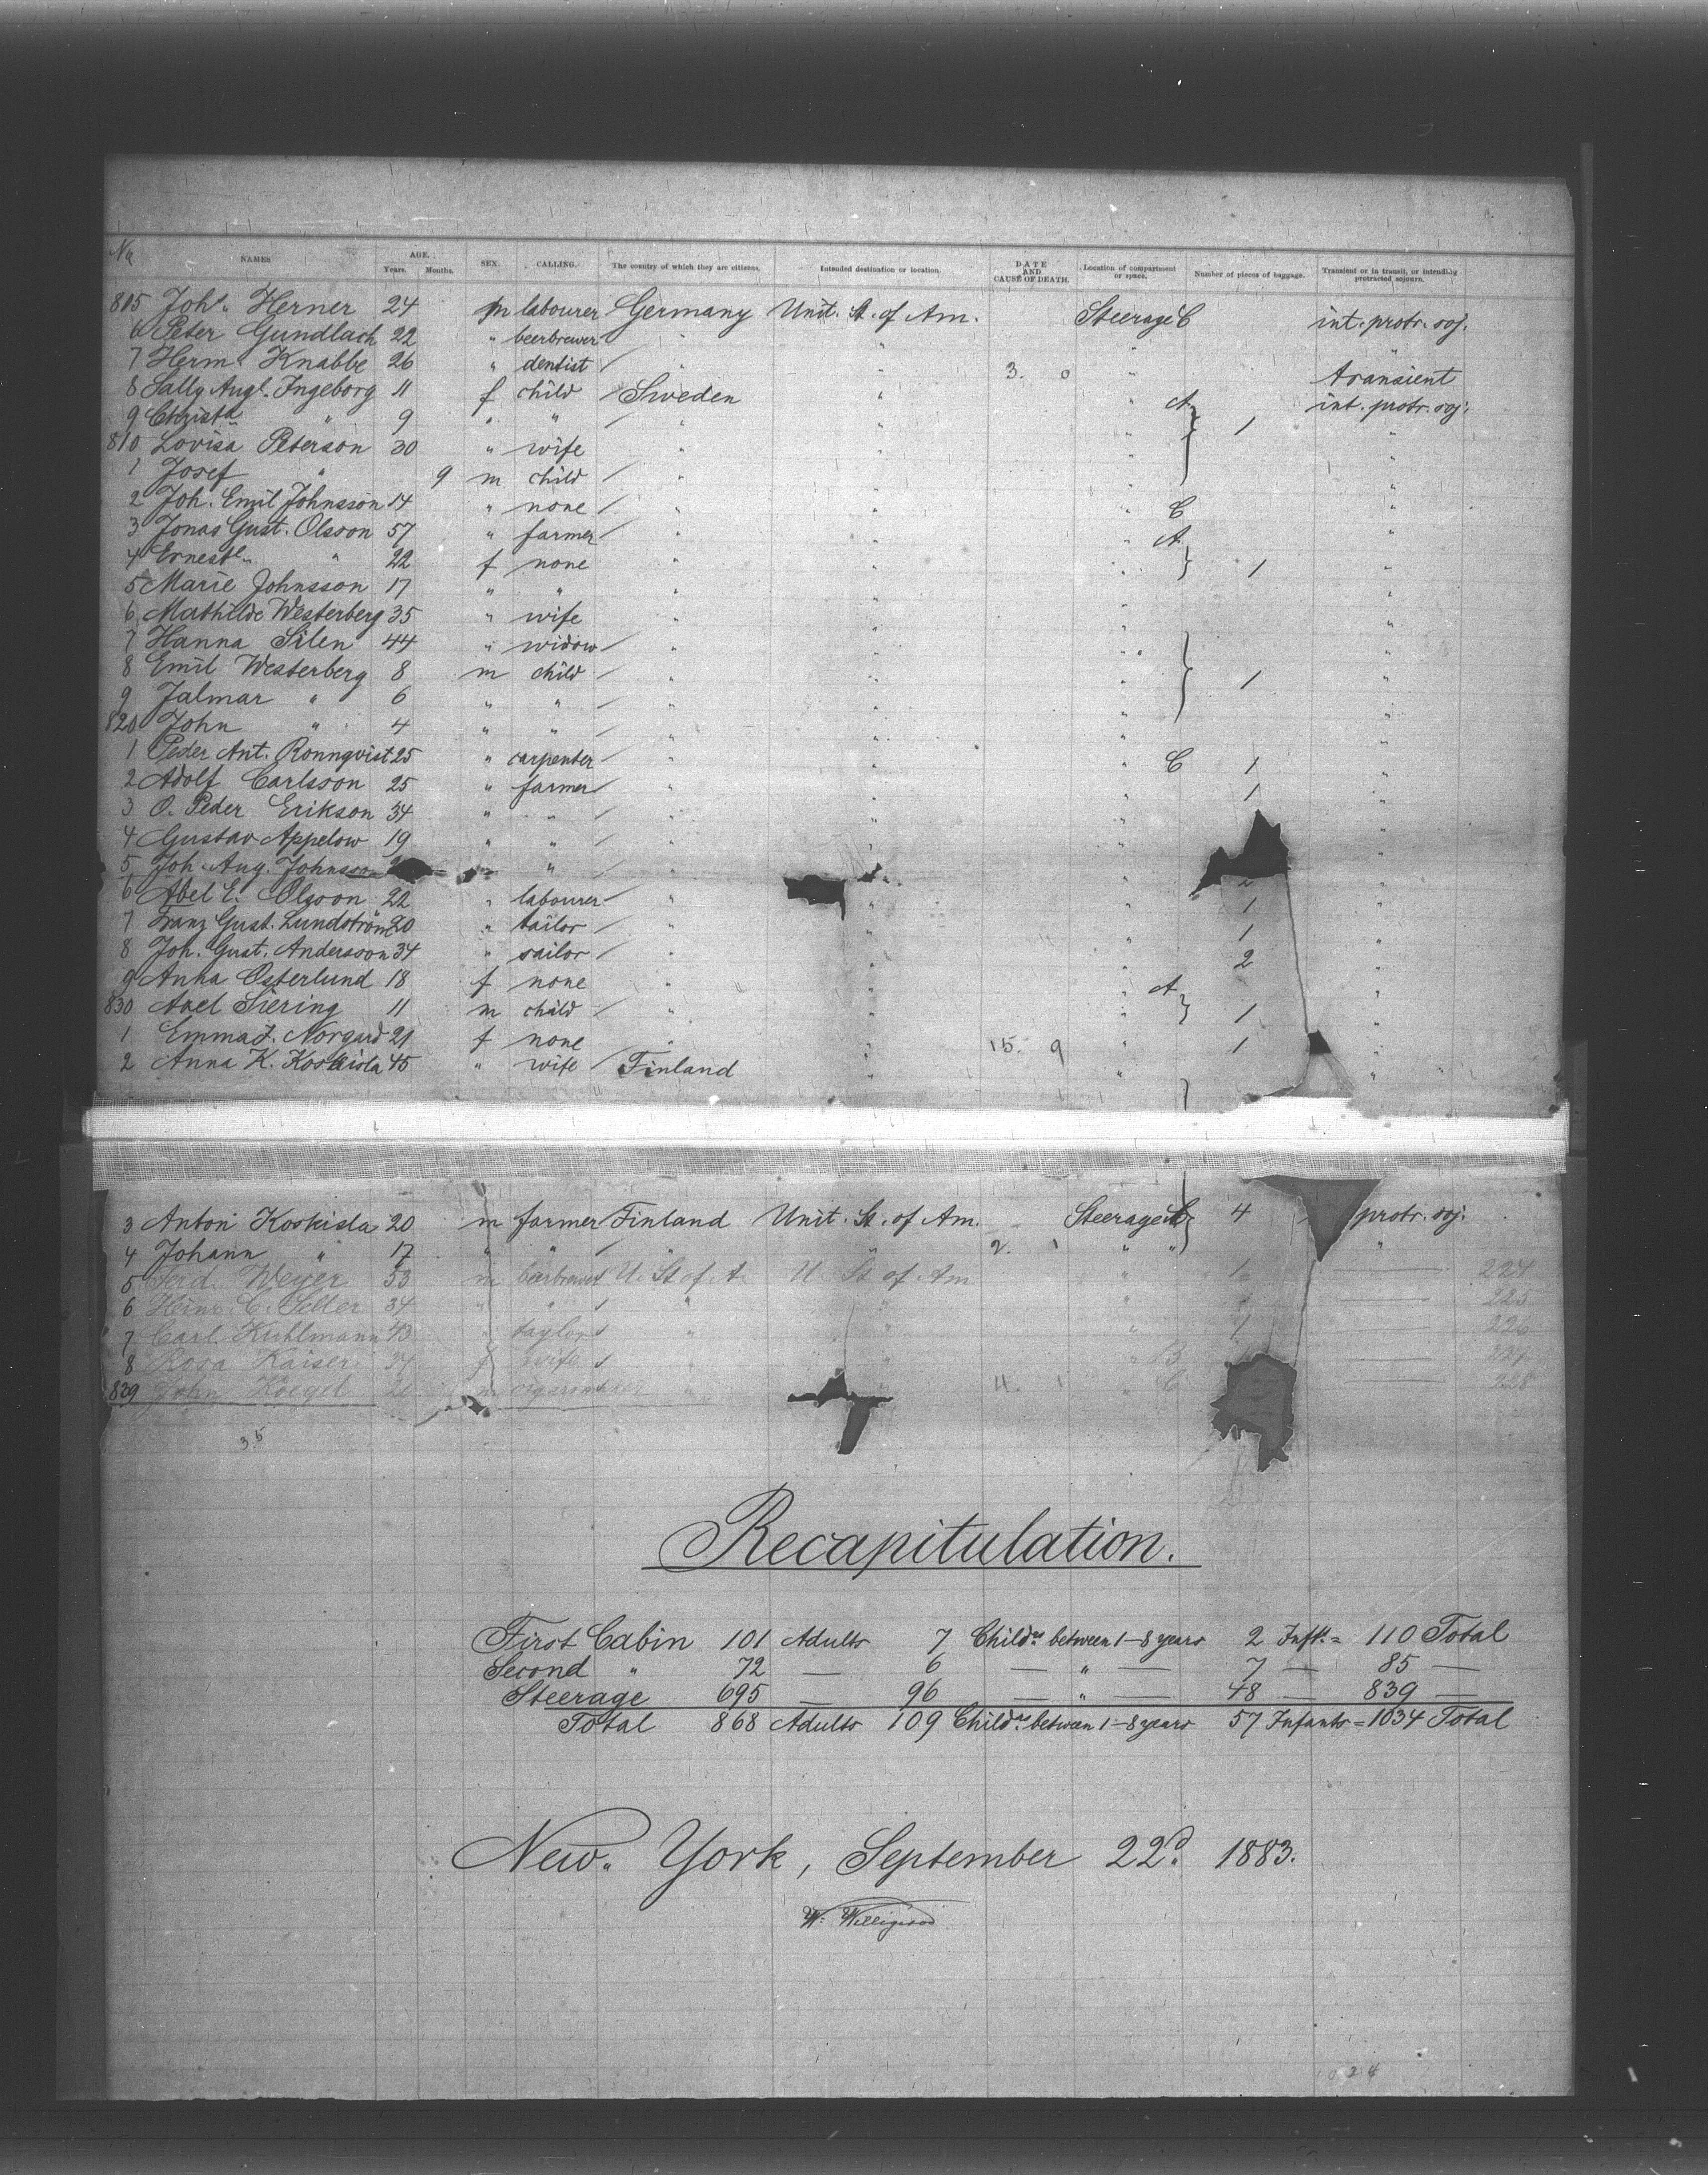 No NAMES AGE. Years. Months. SEX. CALLING. The country of which they are citizens. Intended destination or location. DATE AND CAUSE OF DEATH. Location of compartment or space. Number of pieces of baggage. Transient or in transit, or intending protracted sojourn.
805 Johs. Herner 24 m labourer Germany Unit. St. of Am. Steerage C int. protr. soj.
6 Peter Gundlach 22 " beerbrewer " " " "
7 Herm. Knabbe 26 " dentist " " 3. 0 " transient
8 Sally Augt. Ingeborg 11 f child Sweden " " A int. protr. soj.
9 " 9 " " " " " 1 "
810 Lovisa Peterson 30 " wife " " " "
1 Josef " 9 m child " " " "
2 Joh. Emil Johnsson 14 " none " " " C "
3 Jonas Gust. Olsson 57 " farmer " " " A "
4 " 22 f none " " " 1 "
5 Marie Johnsson 17 " " " " " "
6 Mathilde Westerberg 35 " wife " " " "
7 Hanna Silen 44 " widow " " " "
8 Emil Westerberg 8 m child " " " 1 "
9 Jalmar " 6 " " " " " "
820 John " 4 " " " " " "
1 Peder Ant. Ronnqvist 25 " carpenter " " " C 1 "
2 Adolf Carlsson 25 " farmer " " " 1 "
3 O. Peder Erikson 34 " " " " " "
4 Gustav Appelow 19 " " " " " "
5 Joh. Aug. Johnsson " " " " 2 "
6 Abel E. Olsson 22 " labourer " " " 1 "
7 Franz Gust. Lundström 20 " tailor " " " 1 "
8 Joh. Gust. Andersson 34 " sailor " " " 2 "
9 Anna Osterlund 18 f none " " " A "
830 Axel Siering 11 m child " " " 1 "
1 Emma J. Norgard 21 f none " " 15. 9 " 1 "
2 Anna K. Koskisla 45 " wife Finland " " "
3 Anton Koskisla 20 m farmer Finland Unit. St. of Am. Steerage 4 protr. soj.
4 Johann " 17 " " " " 2. 1 " " "
5 Ferd. Weyer 53 m beerbrewer U. St of A. U. St of Am " 1 224
6 Heinr. C. Seller 34 " " " " " 225
7 Carl Kuhlmann 43 " taylor " " " 1 226
8 Rosa Kaiser 34 f wife " " " B 227
839 John Koegel m cigarmaker " " 4. 1 " C 228
35
Recapitulation.
First Cabin 101 Adults 7 Childrn between 1-8 years 2 Inft. = 110 Total
Second " 72 — 6 — " — 7 — 85 —
Steerage 695 — 96 — " — 48 — 839 —
Total 868 Adults 109 Childrn between 1-8 years 57 Infants = 1034 Total
New York, September 22d. 1883.
W. Willigerod